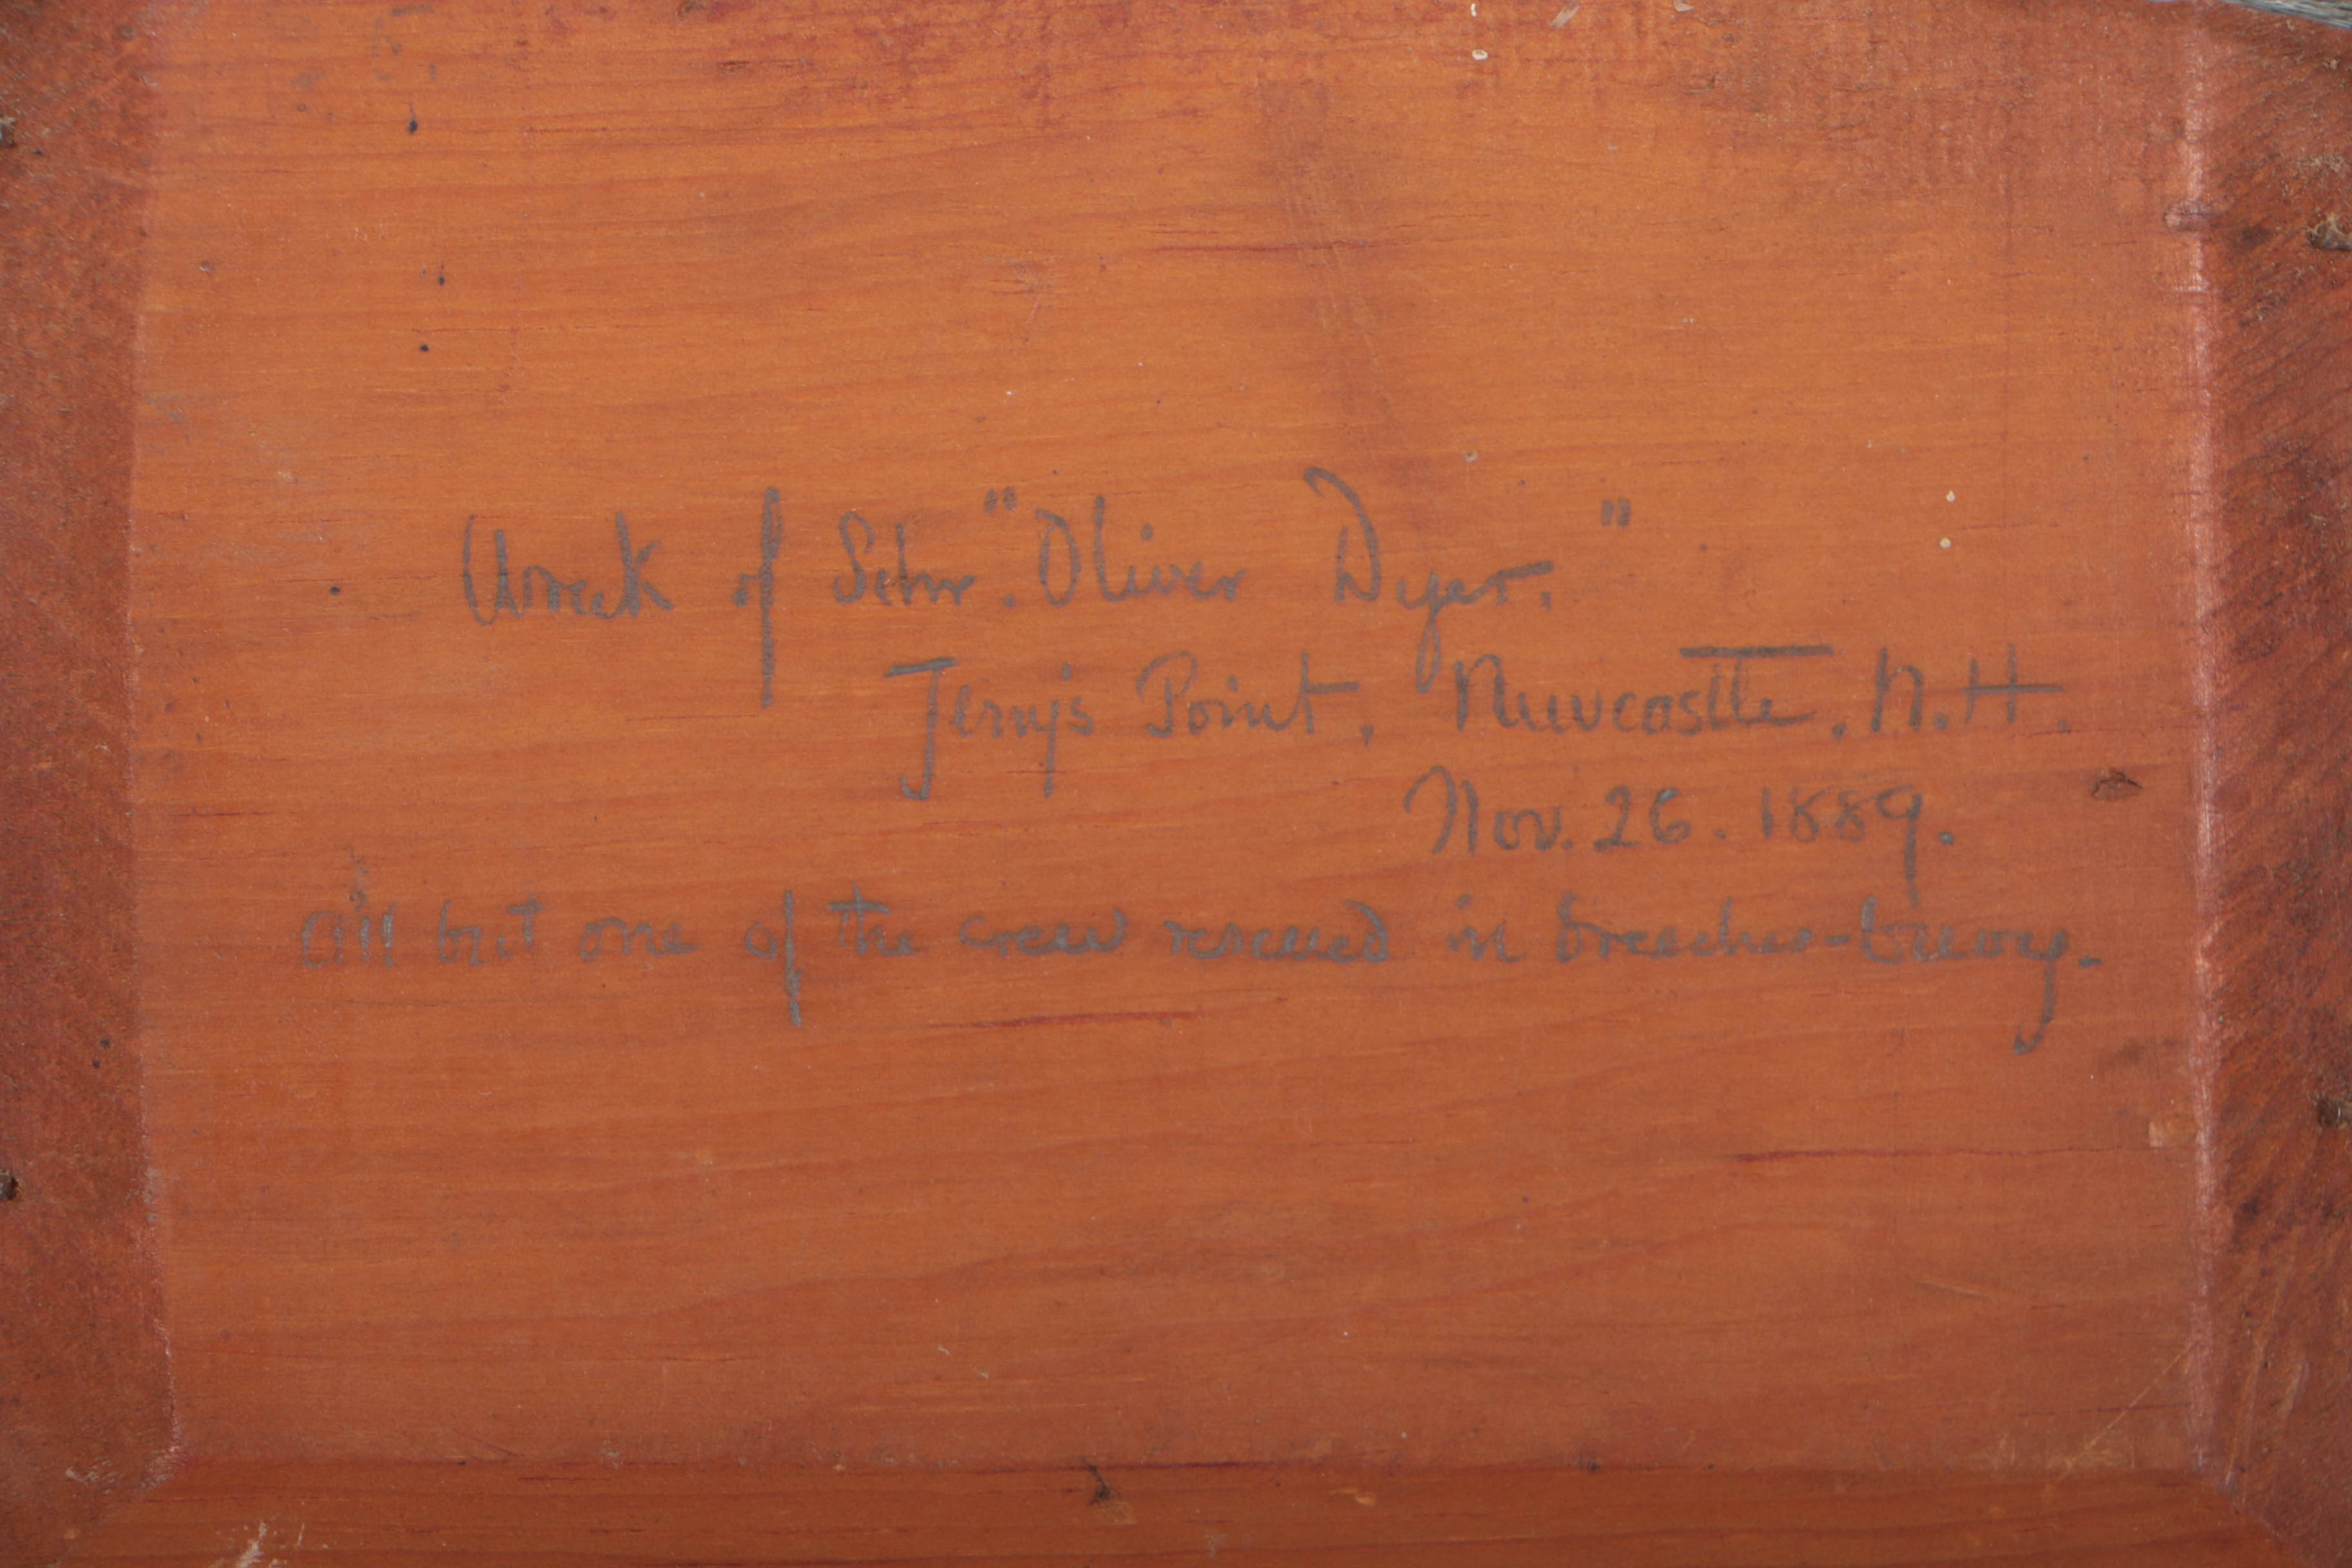 Wreck of Schr. "Oliver Dyer."
Jerry's Point, Newcastle, N.H.
Nov. 26. 1889.
All but one of the crew rescued in breeches-buoy.